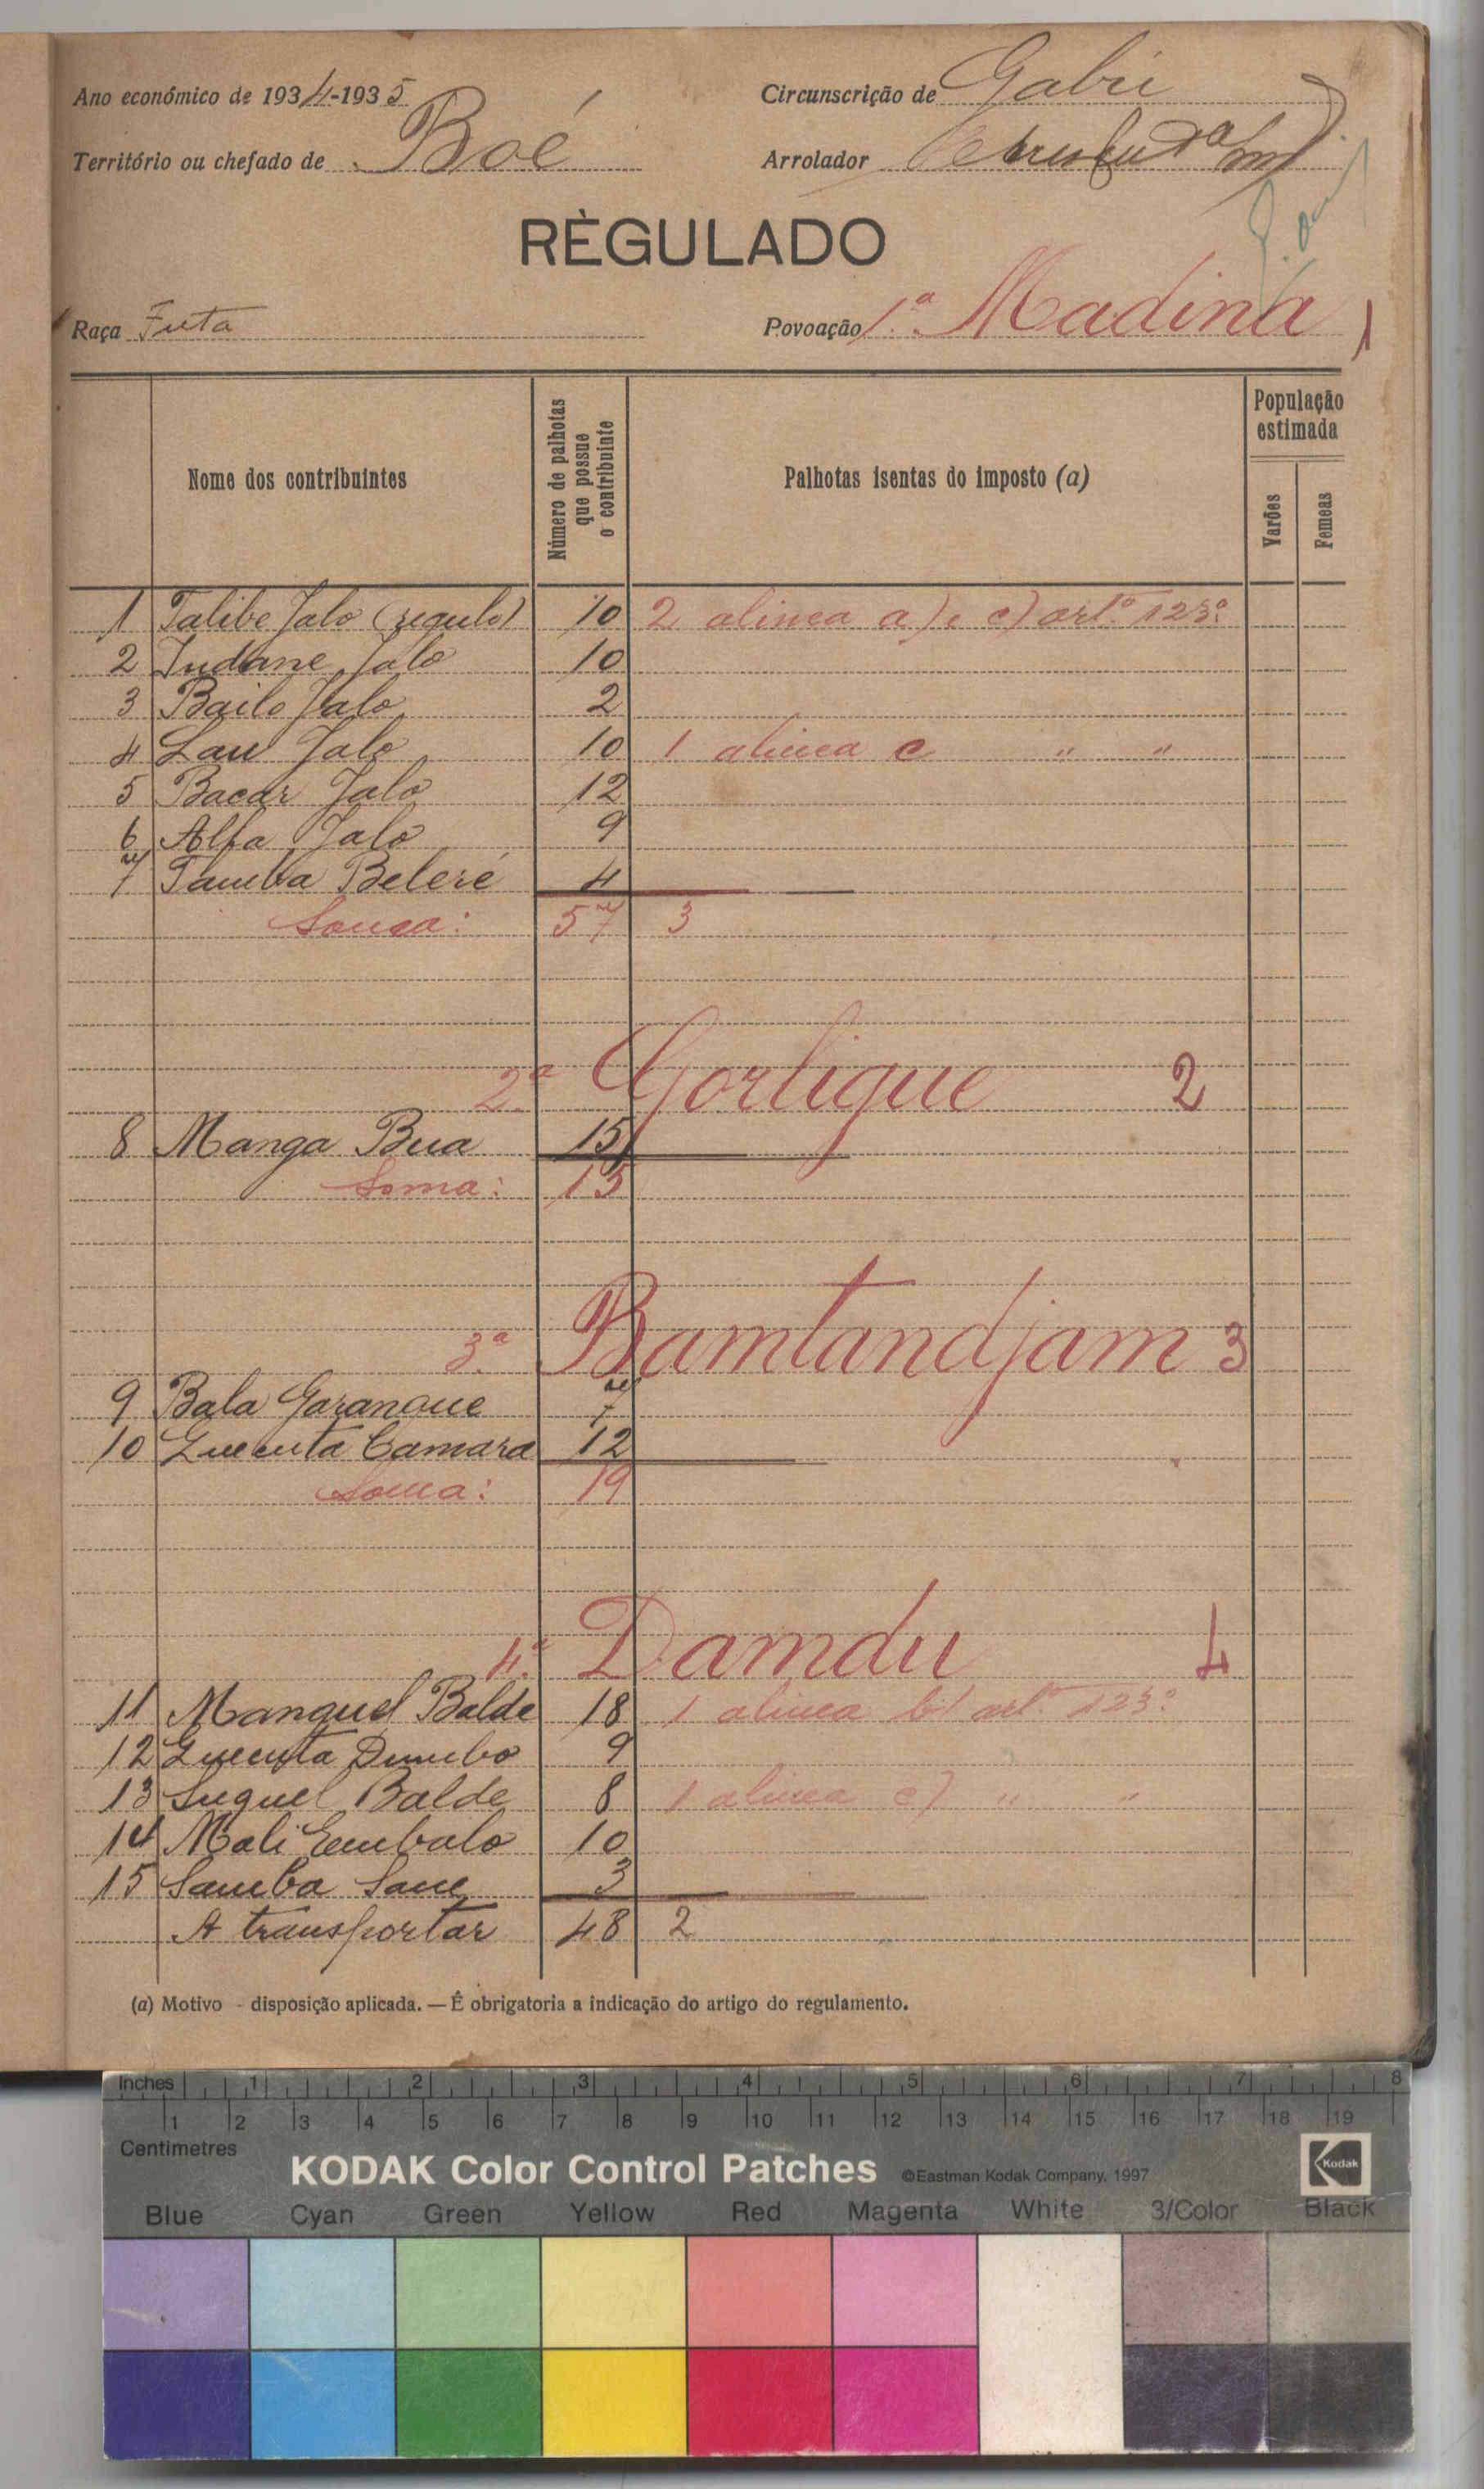 Ano económico de 1934-1935 Circunscrição de Gabú
Território ou chefado de Boé Arrolador
RÈGULADO
Raça Futa Povoação 1.ª Madina 1
Nome dos contribuintes Número de palhotas que possue o contribuinte Palhotas isentas do imposto (a) População estimada Varões Femeas
1 Talibe Jalo (regulo) 10 2 alinea a) e c) art.º 123º
2 Indane Jalo 10
3 Bailo Jalo 2
4 Lau Jalo 10 1 alinea c " "
5 Bacar Jalo 12
6 Alfa Jalo 9
7 Tamba Beleré 4
Soma: 57 3
2ª Gorligue 2
8 Manga Bua 15
Soma: 15
3.ª Bamtandjam 3
9 Bala 7
10 Quecuta Camara 12
Soma: 19
4.ª Damdu 4
11 Manguel Balde 18 1 alinea b) art.º 123º
12 Quecuta Dumbo 9
13 Suguel Balde 8 1 alinea c) " "
14 Mali Embalo 10
15 Samba Sane 3
A transportar 48 2
(a) Motivo - disposição aplicada. — É obrigatoria a indicação do artigo do regulamento.
Inches 1 2 3 4 5 6 7 8
1 2 3 4 5 6 7 8 9 10 11 12 13 14 15 16 17 18 19
Centimetres
KODAK Color Control Patches ©Eastman Kodak Company, 1997 Kodak
Blue Cyan Green Yellow Red Magenta White 3/Color Black